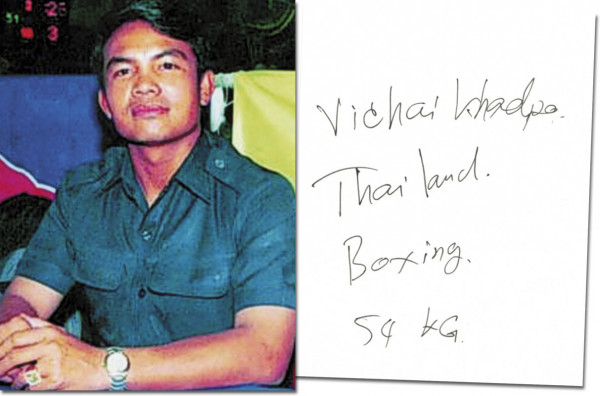 51 25
3
Vichai Khadpo.
Thailand.
Boxing.
54 KG.